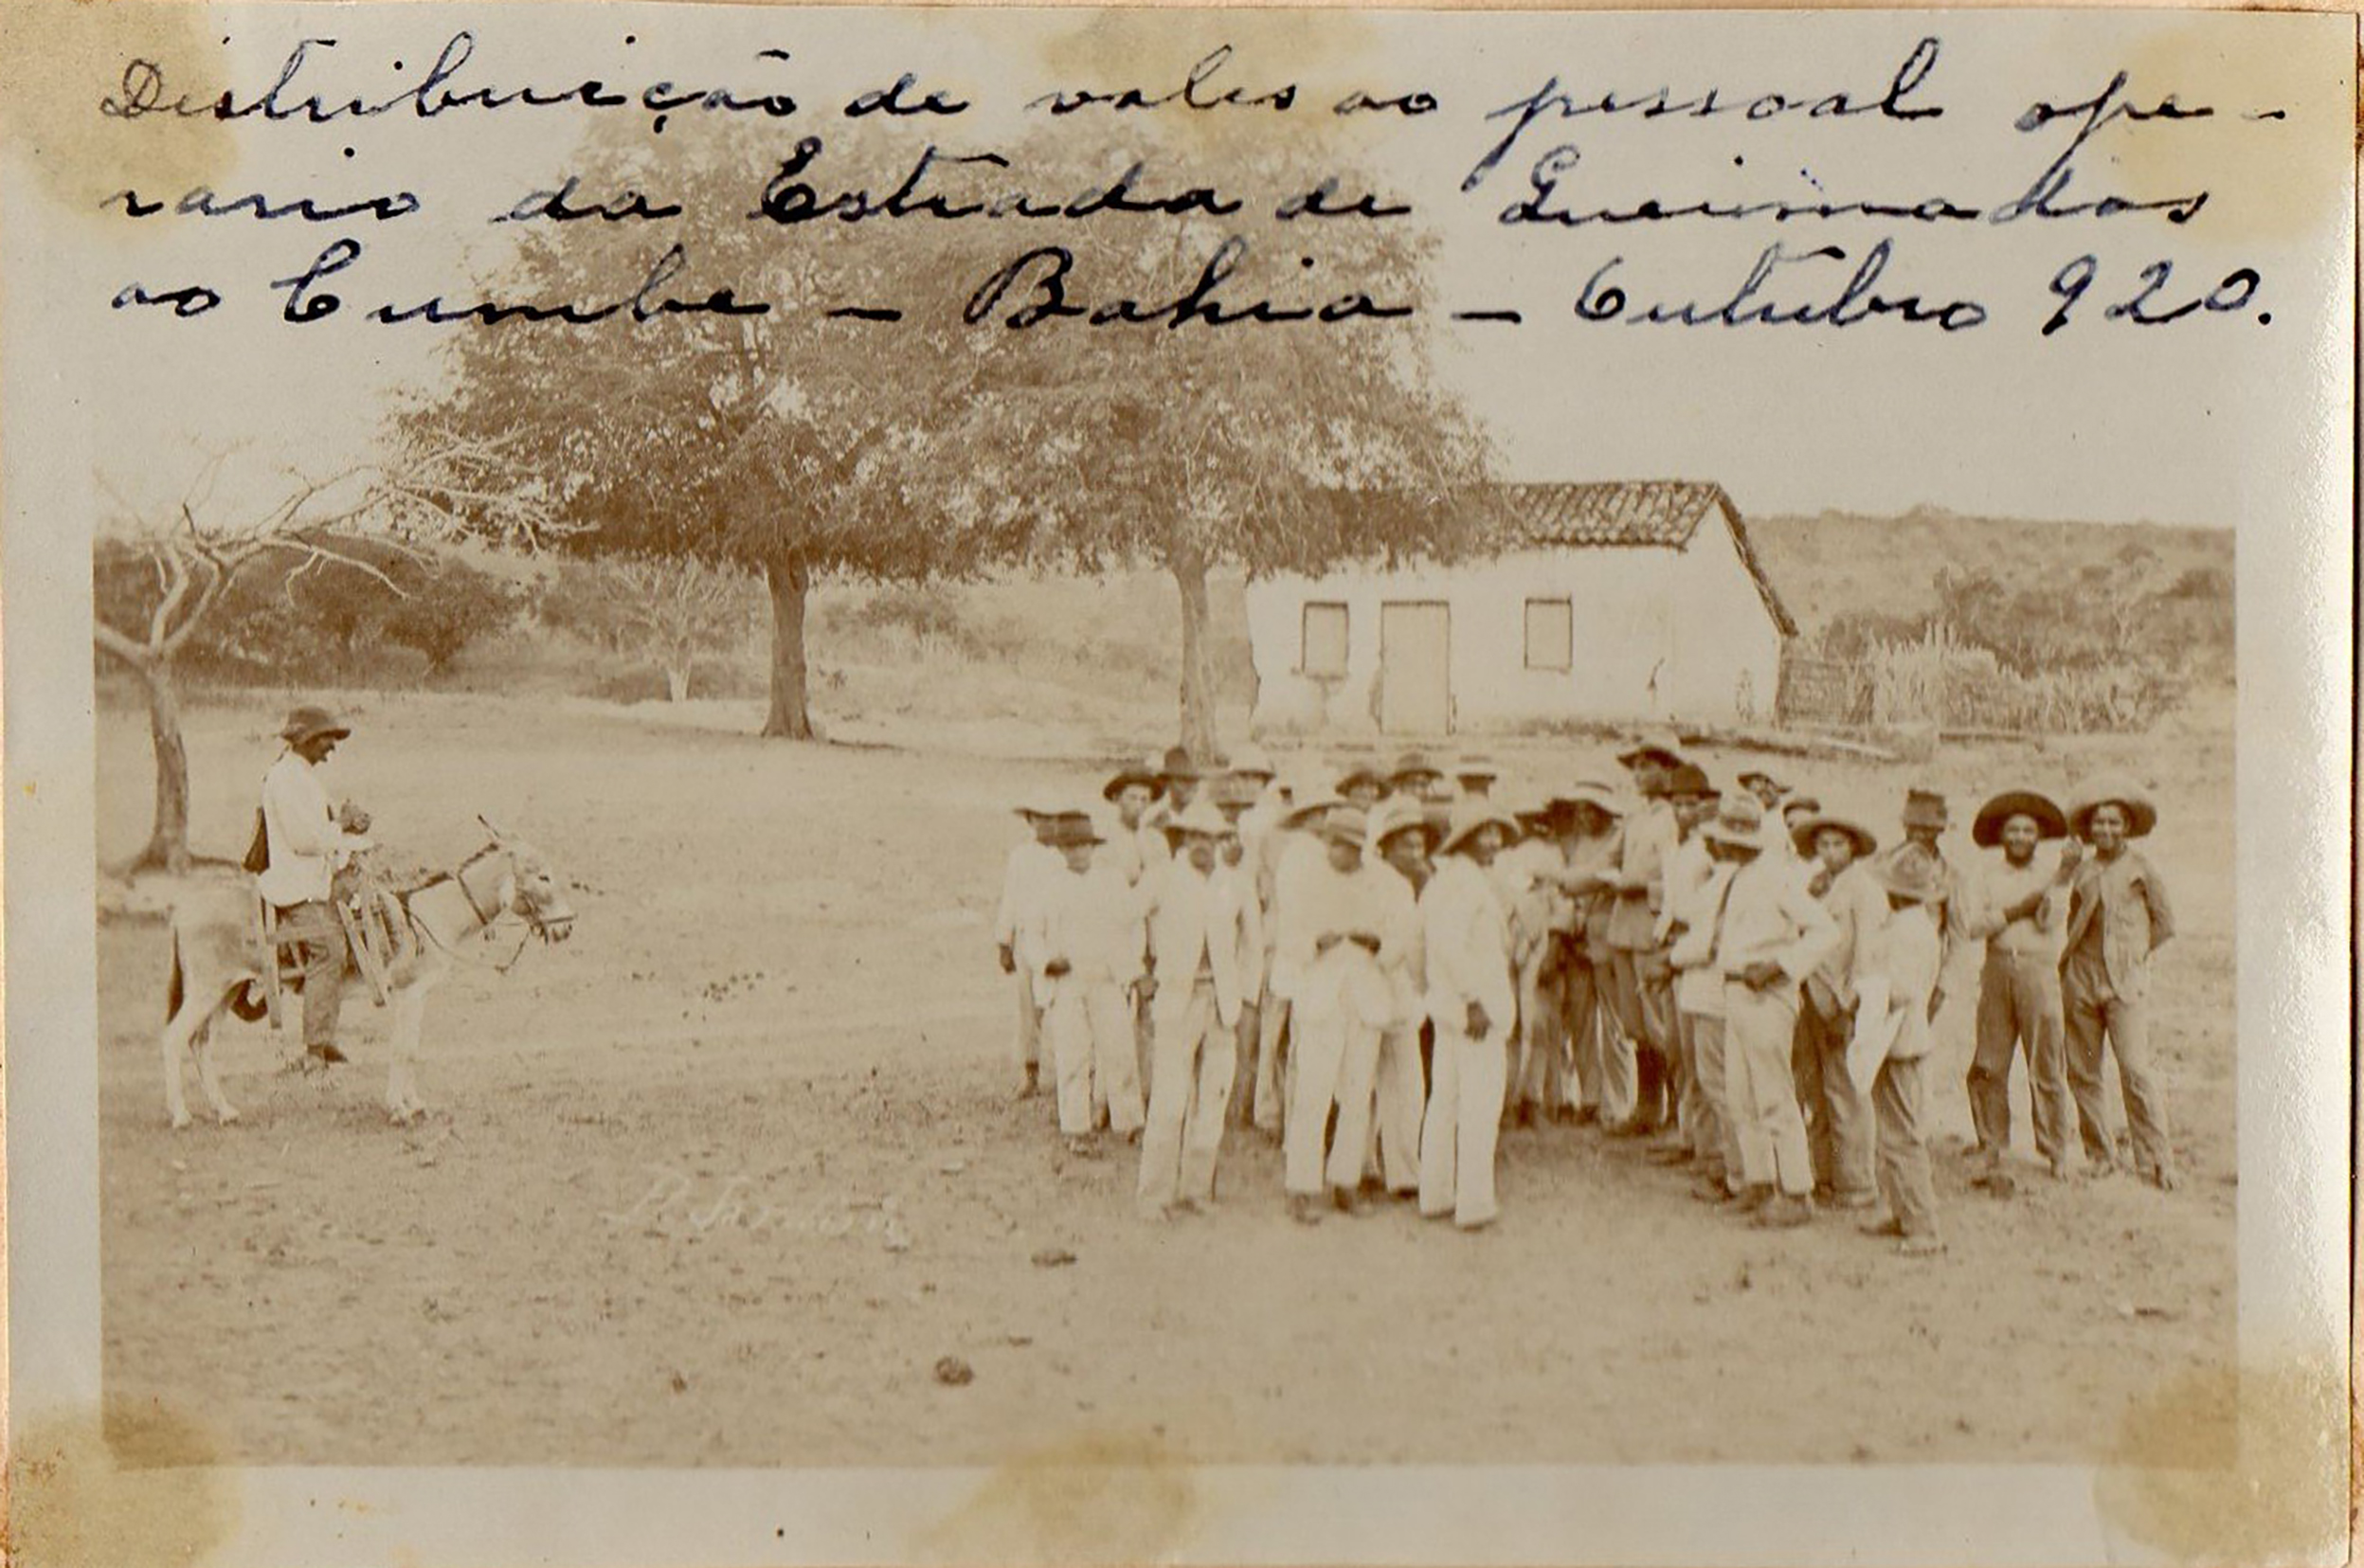 Distribuição de vales ao pessoal ope-
rario da Estrada de Queimadas
ao Cumbe - Bahia - Outubro 920.